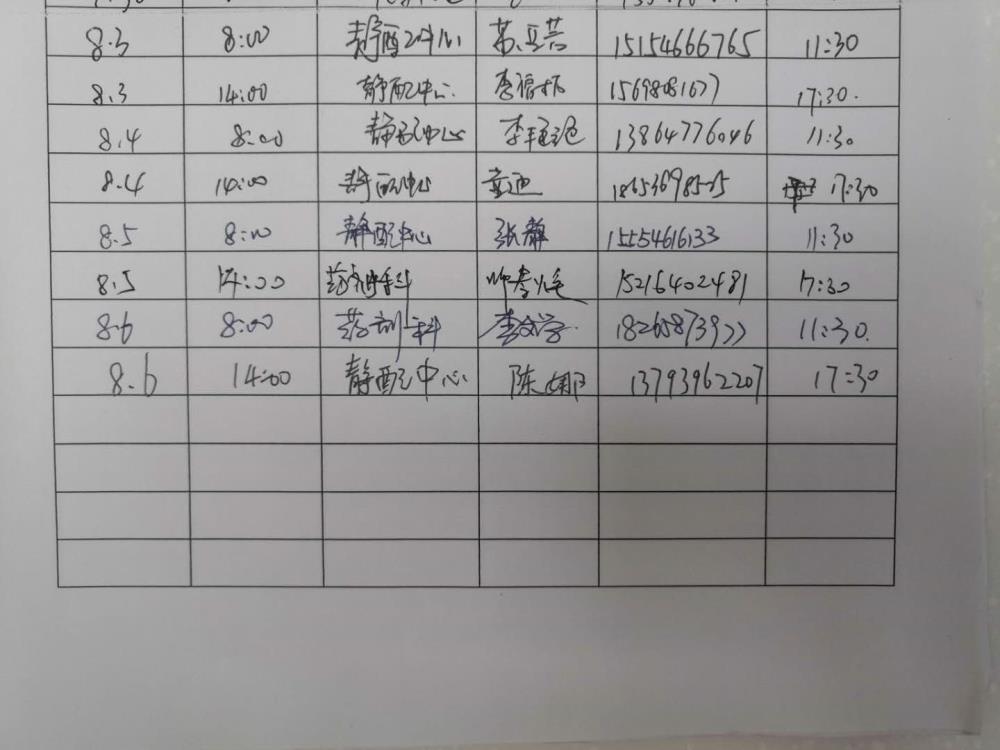 8.3 8:00 静配中心 苏 15154666765 11:30
8.3 14:00 静配中心 李 15698081677 17:30.
8.4 8:00 静配中心 李 13864776046 11:30
8.4 14:00 静配中心 17:30
8.5 8:00 静配中心 张静 15554616133 11:30
8.5 14:00 15216402481 17:30
8.6 8:00 药剂科 李文学 18265873977 11:30.
8.6 14:00 静配中心 陈娜 13793962207 17:30